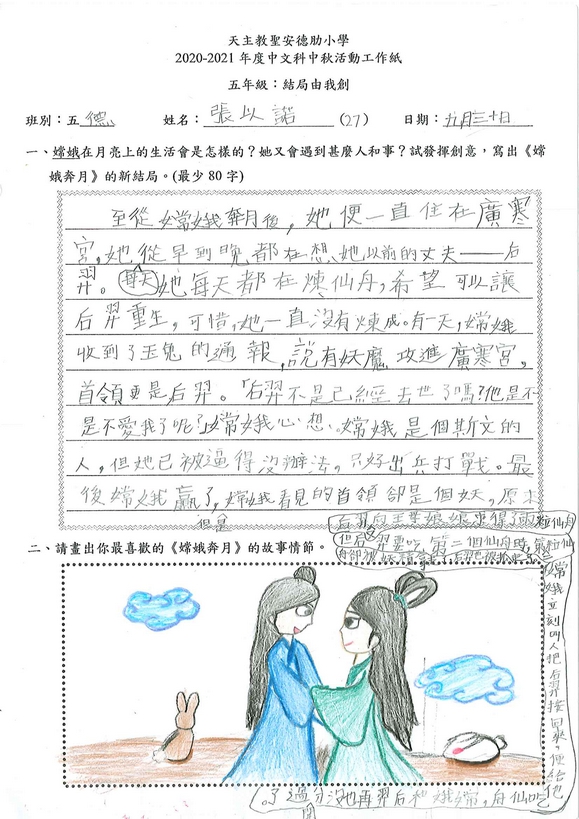 天主教聖安德肋小學
2020-2021 年度中文科中秋活動工作紙
五年級：結局由我創
班別：五 德 姓名：張以諾 (27) 日期：九月三十日
一、嫦娥在月亮上的生活會是怎樣的？她又會遇到甚麼人和事？試發揮創意，寫出《嫦
娥奔月》的新結局。(最少 80 字)
至從嫦娥奔月後，她便一直住在廣寒
宮，她從早到晚都在想她以前的丈夫——后
羿。每天她每天都在煉仙丹，希望可以讓
后羿重生，可惜，她一直沒有煉成。有一天，嫦娥
收到了玉兔的通報，說有妖魔攻進廣寒宮，
首領更是后羿。「后羿不是已經去世了嗎？他是不
是不愛我了呢？」嫦娥心想。嫦娥是個斯文的
人，但她已被逼得沒辦法，只好出兵打戰。最
後嫦娥贏了，嫦娥看見的首領卻是個妖，原來
但是
后羿向王母娘娘求得了兩粒仙丹
但后羿要吃第二個仙丹時，第粒仙
丹卻被妖
二、請畫出你最喜歡的《嫦娥奔月》的故事情節。
嫦娥立刻叫人把后羿接回來，便給他
吃仙丹，嫦娥和后羿再也沒分開過了。